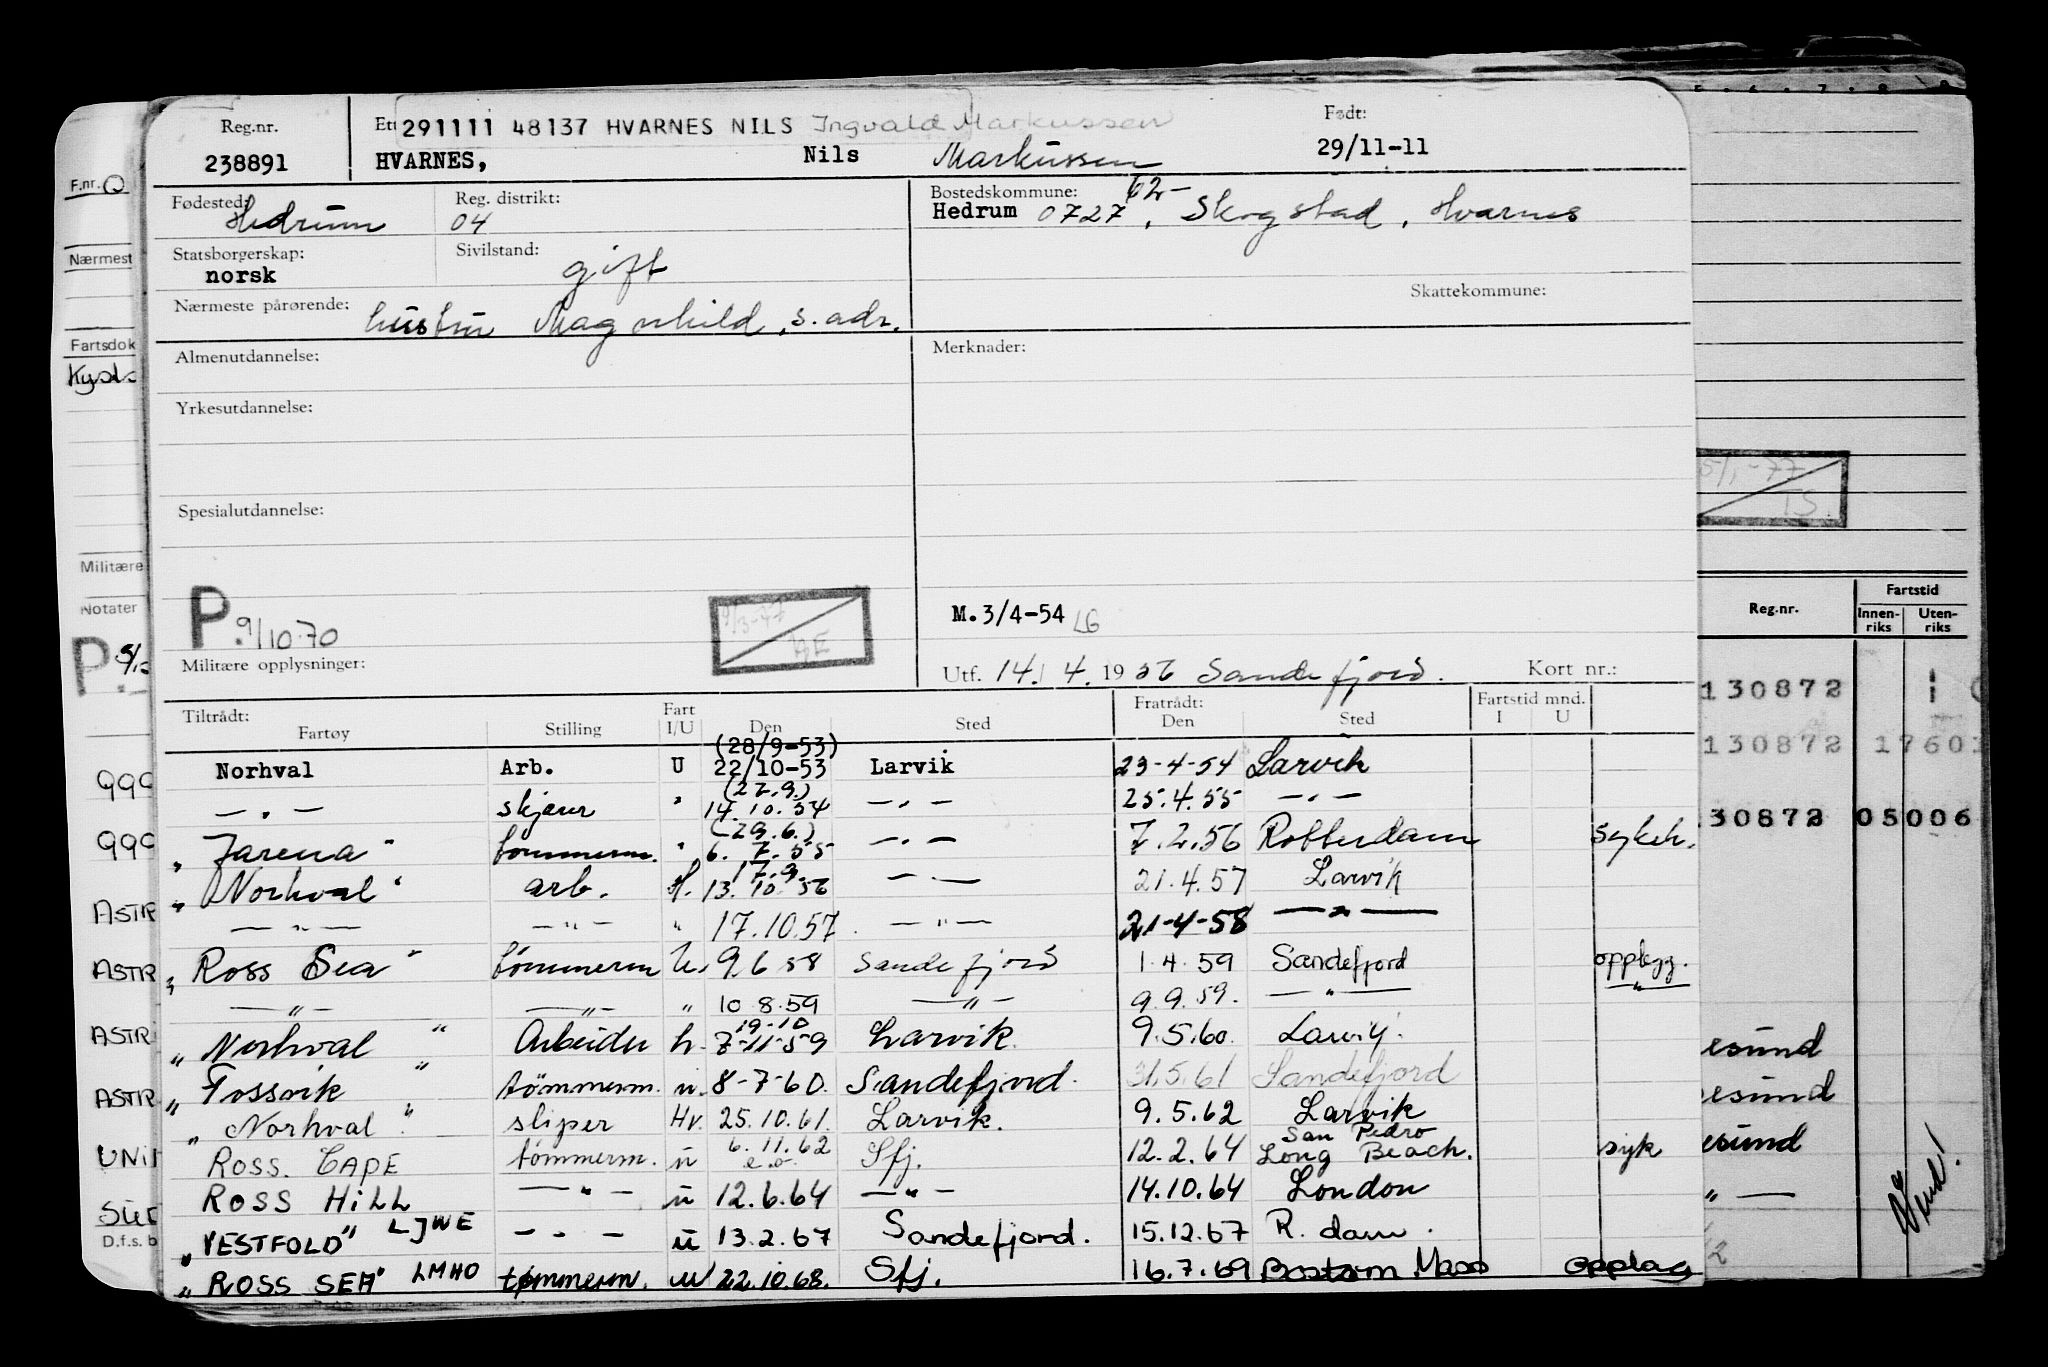 Reg.nr. 238891
Ett 291111 48137 HVARNES NILS Ingvald Markussen
HVARNES, Nils Markussen
Født: 29/11-11
Fødested: Hedrum
Reg. distrikt: 04
Bostedskommune: 62-
Hedrum 0727, Skogstad, Hvarnes
Statsborgerskap: norsk
Sivilstand: gift
Nærmeste pårørende: hustru Magnhild, s. adr.
Skattekommune:
Almenutdannelse:
Merknader:
Yrkesutdannelse:
Spesialutdannelse:
P. 9/10.70
M.3/4-54 LG
Militære opplysninger:
Utf. 14. 4. 1956 Sandefjord. Kort nr.:
Tiltrådt: Fartøy Stilling Fart I/U Den Sted Fratrådt: Den Sted Fartstid mnd. I U
(28/9-53)
Norhval Arb. U 22/10-53 Larvik 23-4-54 Larvik
(27.9.)
— " — skjærer " 14.10.54 — " — 25.4.55 — " —
(29.6.)
"Jarena" tømmerm. " 6. 7. 55 — " — 7.2.56 Rotterdam sykeh.
17.9.
"Norhval" arb. H. 13.10.56 — " — 21.4.57 Larvik
— " — — " — " 17.10.57 — " — 21-4-58 — " —
"Ross Sea" tømmerm U. 9.6 58 Sandefjord 1.4.59 Sandefjord opplegg.
— " — — " — " 10 8.59 — " — 9.9.59. — " — — " —
19-10
"Norhval" Arbeider h. 7-11-59 Larvik. 9.5.60. Larvik.
"Fossvik" tømmerm. u. 8-7-60. Sandefjord. 31.5.61 Sandefjord
"Norhval" sliper Hv. 25.10.61. Larvik. 9.5.62 Larvik
ROSS. CAPE tømmerm. u 6.11.62 e.o. Sfj. 12.2.64 San Pedro Long Beach. syk
ROSS HILL — " — u 12.6.64 — " — 14.10.64 London
"VESTFOLD" LJWE — " — u 13.2.67 Sandefjord. 15.12.67 R. dam.
"ROSS SEA" LMHO tømmerm. u 22.10.68. Sfj. 16.7.69 Boston Mass opplag
F.nr. 0
Nærmest
Fartsdok
Kysts
Militære
Notater
P. 5/12
999
999
ASTR
ASTR
ASTR
ASTR
UNI
D.f.s. b
5 . 6 . 7 . 8 . 9
5/1-77
TS.
Reg.nr. Fartstid
Innenriks Utenriks
130872 1
130872 1760
30872 05006
esund
esund
esund
" —
Vend!